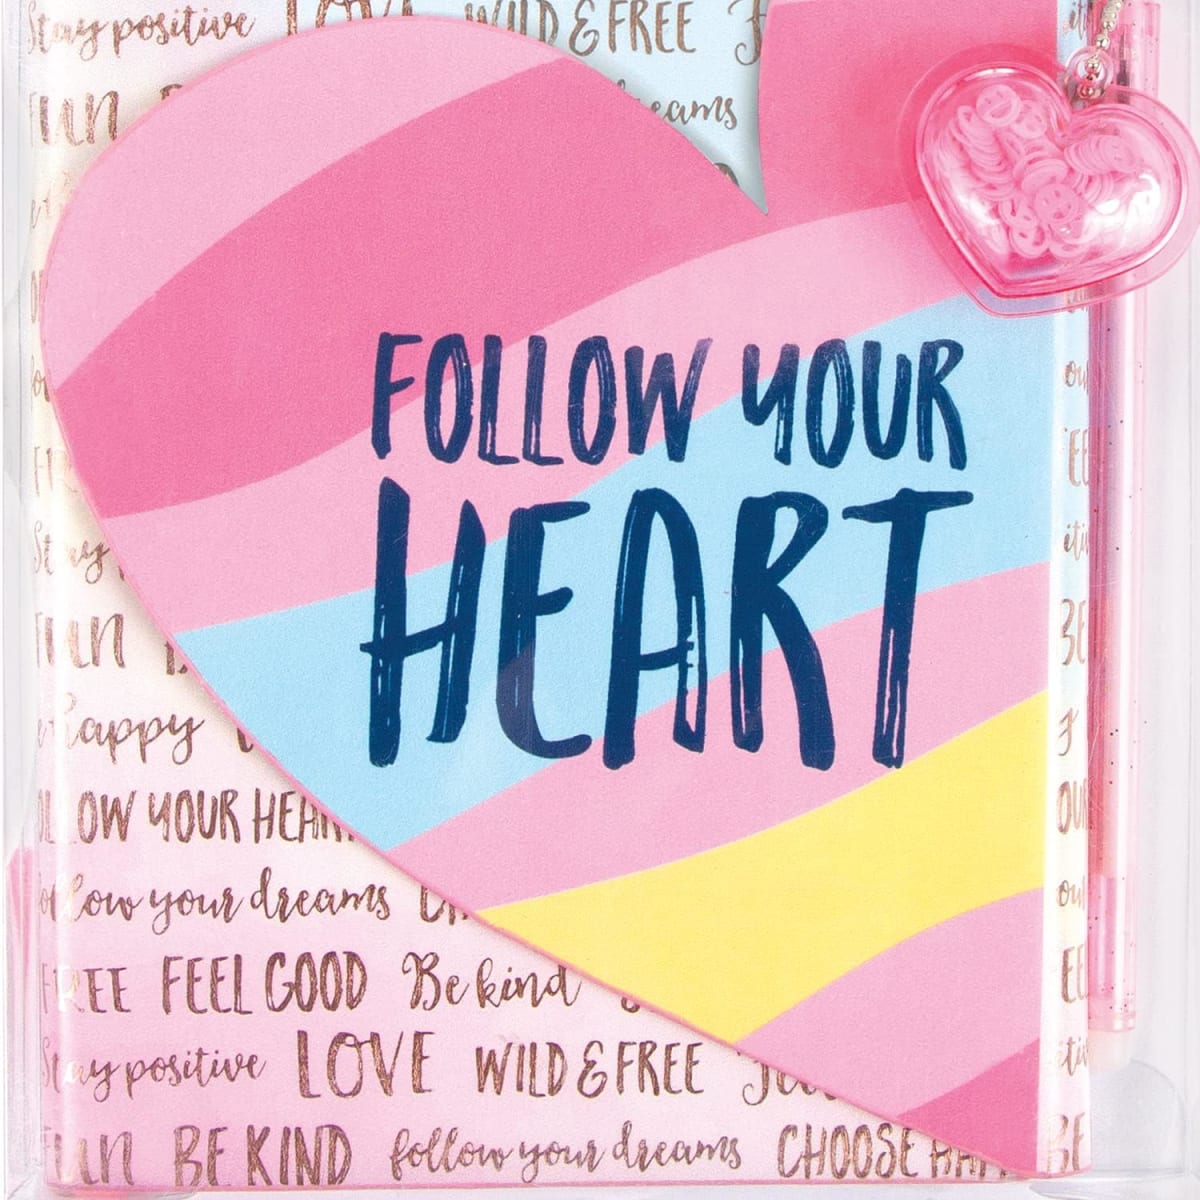 Stay positive LOVE WILD & FREE
FUN
dreams
FOLLOW YOUR
HEART
Stay
FUN
happy
YOUR HEART
follow your dreams
FREE FEEL GOOD Be kind
Stay positive LOVE WILD & FREE
FUN BE KIND follow your dreams CHOOSE
BE